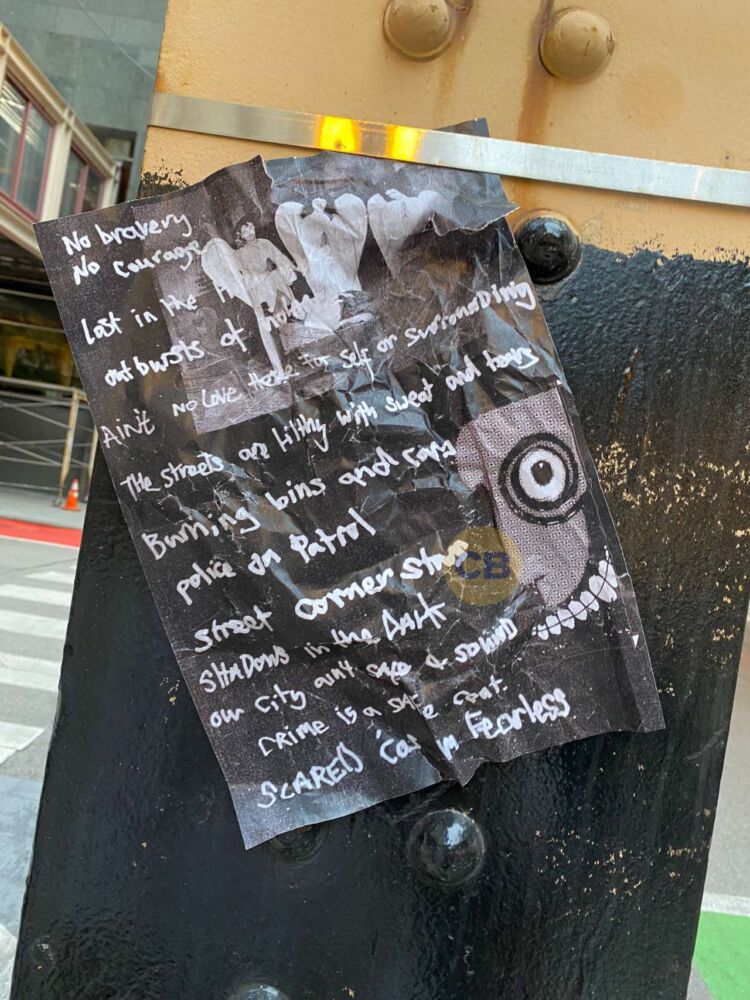 No bravery
No courage
Lost in the
outbursts of
AiN't no Love Here for self or surrounDing
THe streets are filthy with sweat and tears
Burning bins and cars
police on Patrol
street corner
SHaDows in the DArk
our City ain't safe & soUND
CRIME is a
SCAREd 'Cause I'm Fearless
CB